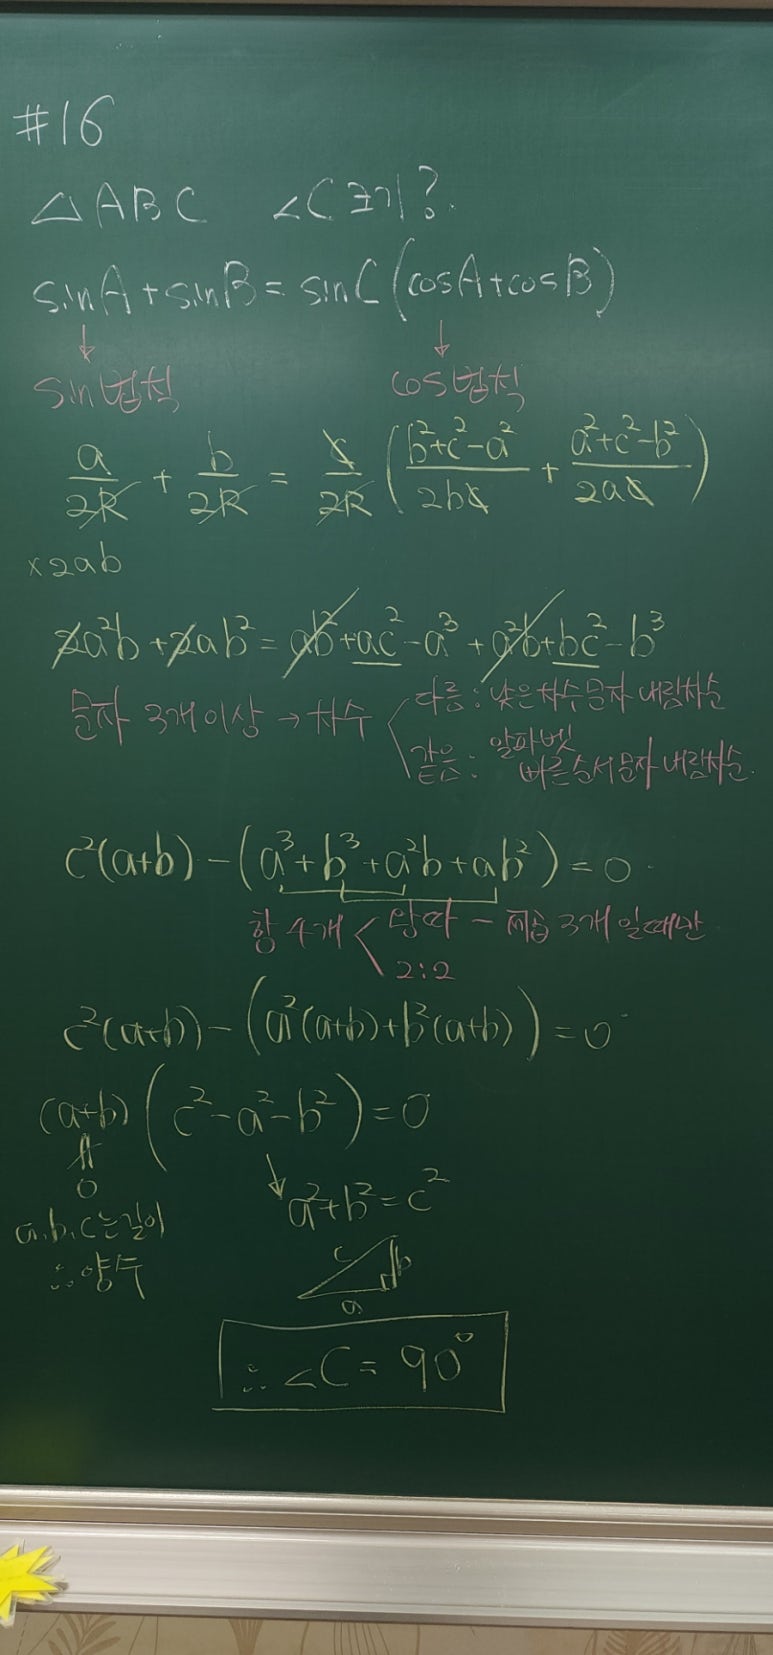 #16
△ABC ∠C 크기?
sinA+sinB = sinC(cosA+cosB)
↓ ↓
sin법칙 cos법칙
a/2R + b/2R = c/2R ( (b²+c²-a²)/2bc + (a²+c²-b²)/2ac )
×2ab
2a²b + 2ab² = ab²+ac²-a³ + a²b+bc²-b³
문자 3개이상 → 차수 < 다름 : 낮은차수문자 내림차순
같음 : 알파벳 빠른순서문자 내림차순.
c²(a+b) - (a³+b³+a²b+ab²) = 0
항 4개 < 항따 - 제곱 3개 일때만
2:2
c²(a+b) - (a²(a+b)+b²(a+b)) = 0
(a+b)(c²-a²-b²) = 0
0 ↓ a²+b² = c²
a, b, c는 길이
∴ 양수
c b
a
∴ ∠C = 90°